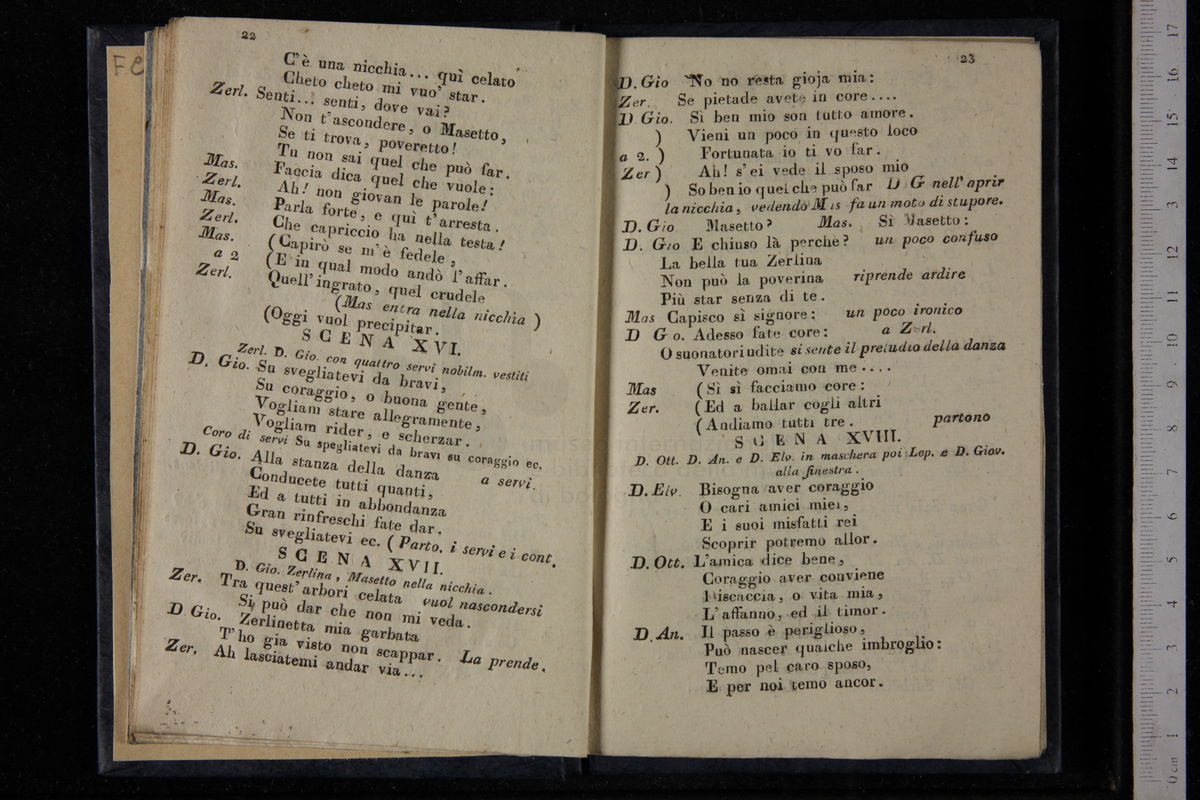 22
C'è una nicchia... quì celato
Cheto cheto mi vuo' star.
Zerl. Senti... senti, dove vai?
Non t'ascondere, o Masetto,
Se ti trova, poveretto!
Tu non sai quel che può far.
Mas. Faccia dica quel che vuole:
Zerl. Ah! non giovan le parole!
Mas. Parla forte, e quì t'arresta.
Zerl. Che capriccio ha nella testa!
Mas. (Capirò se m'è fedele,
a 2 (E in qual modo andò l'affar.
Zerl. Quell' ingrato, quel crudele
(Mas entra nella nicchia)
(Oggi vuol precipitar.
SCENA XVI.
Zerl. D. Gio. con quattro servi nobilm. vestiti
D. Gio. Su svegliatevi da bravi,
Su coraggio, o buona gente,
Vogliam stare allegramente,
Vogliam rider, e scherzar.
Coro di servi Su spegliatevi da bravi su coraggio ec.
D. Gio. Alla stanza della danza a servi.
Conducete tutti quanti,
Ed a tutti in abbondanza
Gran rinfreschi fate dar.
Su svegliatevi ec. (Parto. i servi e i cont.
SCENA XVII.
D. Gio. Zerlina, Masetto nella nicchia.
Zer. Tra quest' arbori celata vuol nascondersi
Si può dar che non mi veda.
D Gio. Zerlinetta mia garbata
T'ho gia visto non scappar. La prende.
Zer. Ah lasciatemi andar via...
23
D. Gio No no resta gioja mia:
Zer. Se pietade avete in core....
D Gio. Sì ben mio son tutto amore.
) Vieni un poco in questo loco
a 2. ) Fortunata io ti vo far.
Zer ) Ah! s'ei vede il sposo mio
) So ben io quel che può far D G nell' aprir
la nicchia, vedendo Mas fa un moto di stupore.
D. Gio Masetto? Mas. Sì Masetto:
D. Gio E chiuso là perchè? un poco confuso
La bella tua Zerlina
Non può la poverina riprende ardire
Più star senza di te.
Mas Capisco sì signore: un poco ironico
D G o. Adesso fate core: a Zerl.
O suonatori udite si sente il preludio della danza
Venite omai con me....
Mas (Sì sì facciamo core:
Zer. (Ed a ballar cogli altri
(Andiamo tutti tre. partono
SCENA XVIII.
D. Ott. D. An. e D. Elv. in maschera poi Lep. e D. Giov.
alla finestra.
D. Elv. Bisogna aver coraggio
O cari amici miei,
E i suoi misfatti rei
Scoprir potremo allor.
D. Ott. L'amica dice bene,
Coraggio aver conviene
Discaccia, o vita mia,
L'affanno, ed il timor.
D. An. Il passo è periglioso,
Può nascer qualche imbroglio:
Temo pel caro sposo,
E per noi temo ancor.